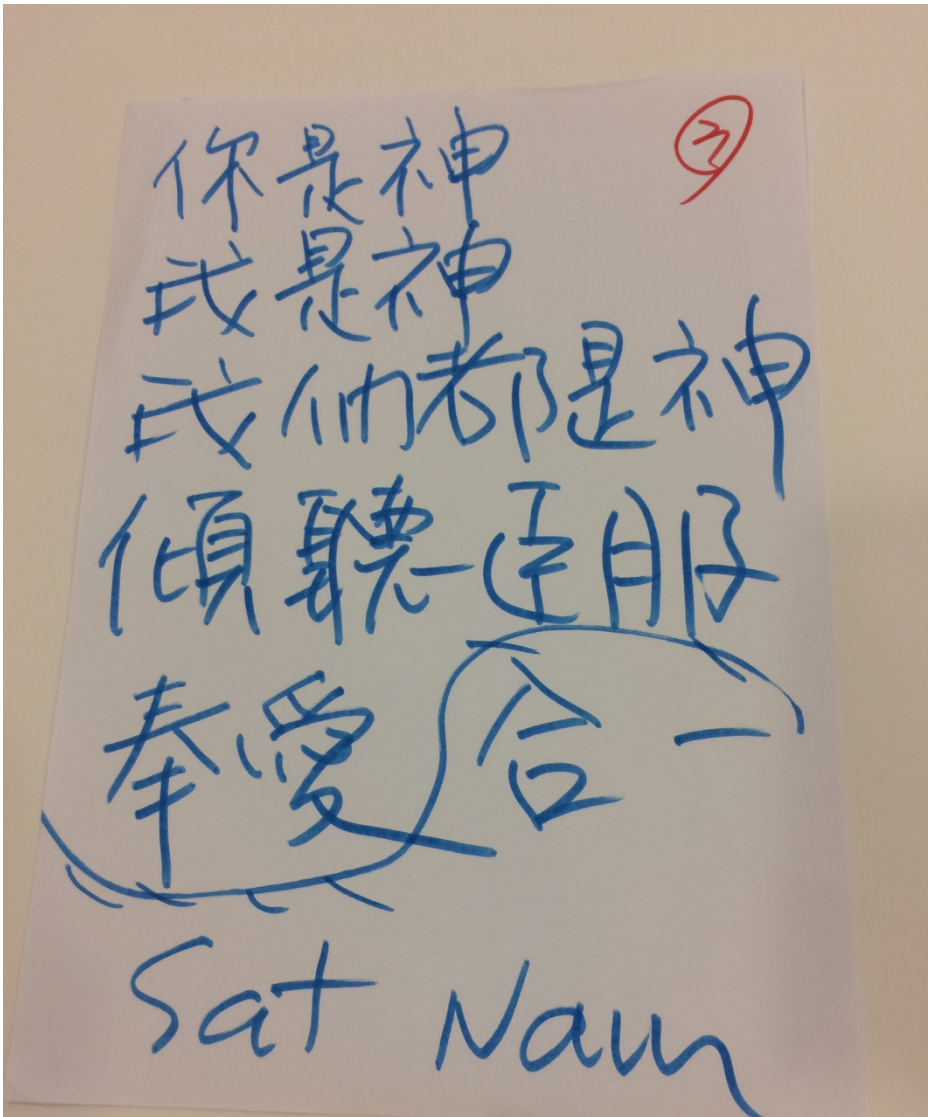 ③
你是神
我是神
我們都是神
傾聽臣服
奉愛合一
Sat Nam